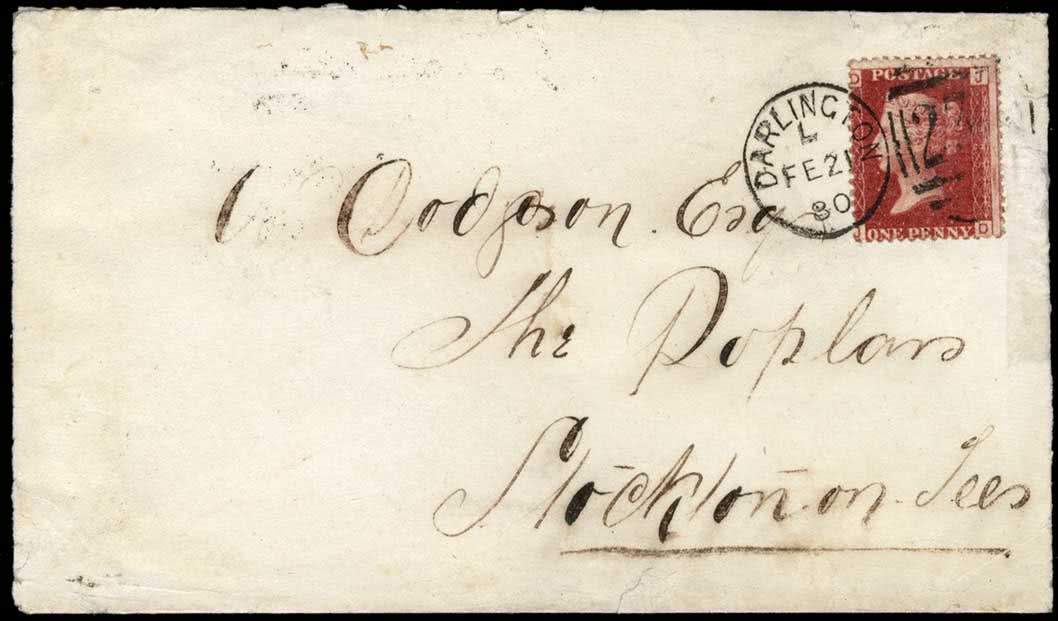 D POSTAGE J
DARLINGTON
L
FE 21
80
227
J ONE PENNY D
Dodgson Esq
The Poplars
Stockton-on-Tees